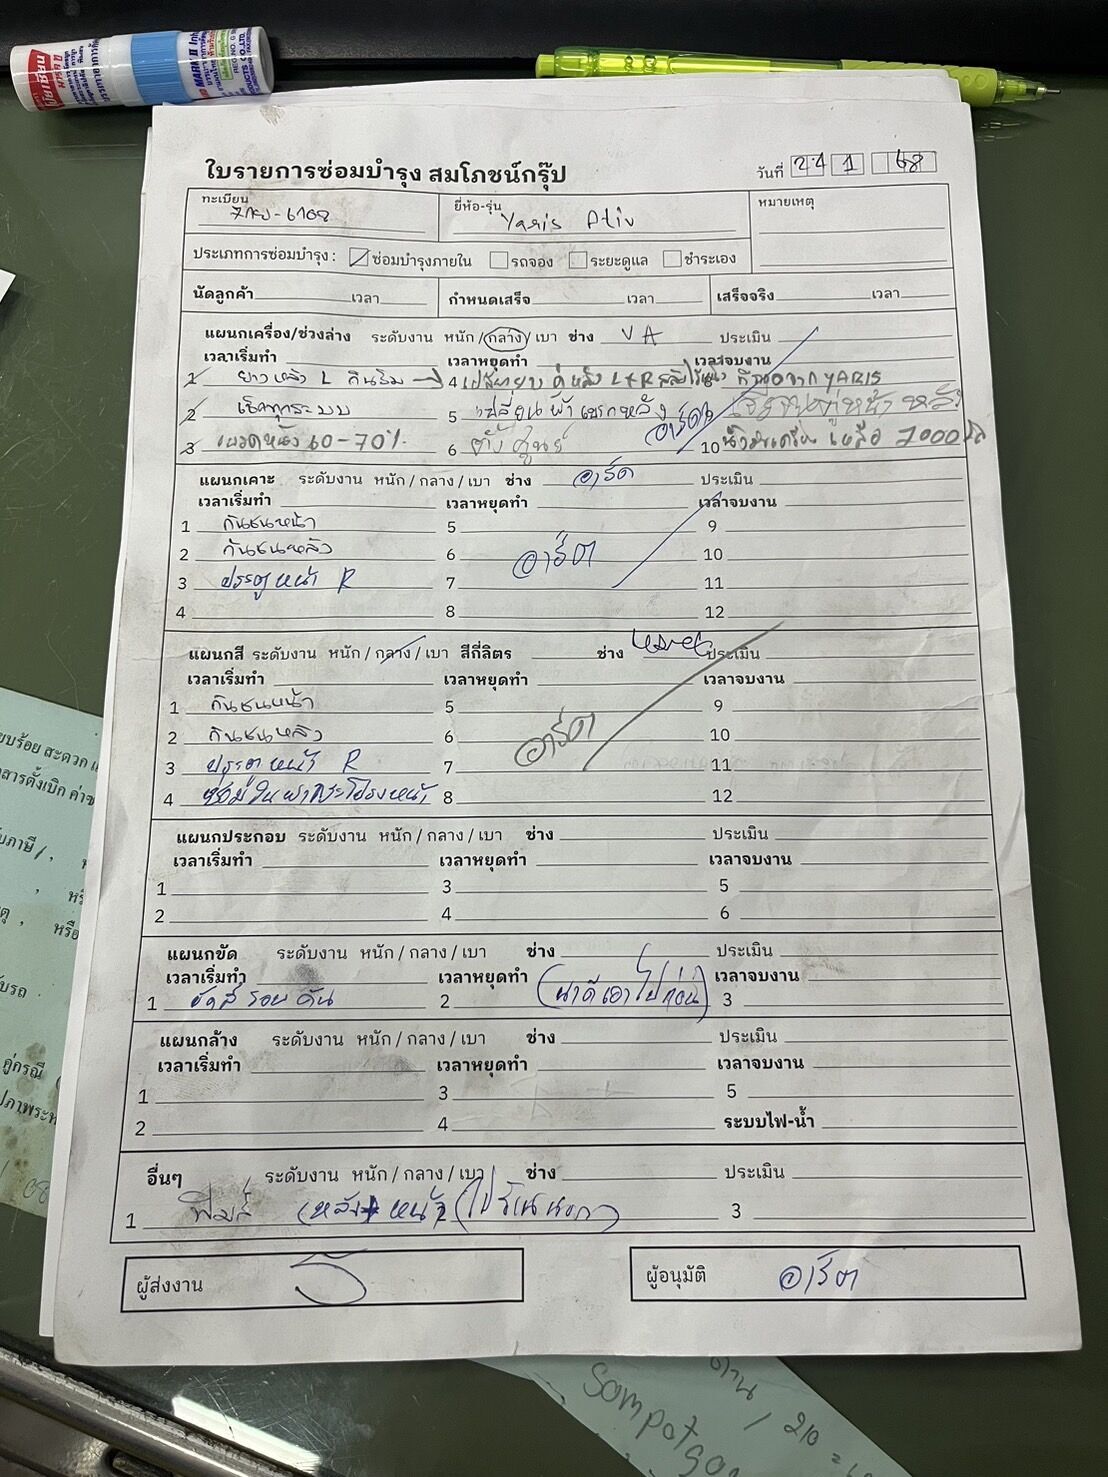 ใบรายการซ่อมบำรุง สมโภชน์กรุ๊ป
วันที่ 24 1 68
ทะเบียน
ยี่ห้อ-รุ่น Yaris Ativ
หมายเหตุ
ประเภทการซ่อมบำรุง : ซ่อมบำรุงภายใน รถจอง ระยะดูแล ชำระเอง
นัดลูกค้า เวลา กำหนดเสร็จ เวลา เสร็จจริง เวลา
แผนกเครื่อง/ช่วงล่าง ระดับงาน หนัก / กลาง / เบา ช่าง VA ประเมิน
เวลาเริ่มทำ เวลาหยุดทำ เวลาจบงาน
1 ยางหลัง L กินริม 4 เปลี่ยนยาง คู่หลัง L+R YARIS
2 เช็คทุกระบบ 5 เปลี่ยนผ้าเบรกหลัง อาร์ต
3 เบรคหลัง 60-70% 6 ตั้งศูนย์ 10 น้ำมันเครื่อง เหลือ 7000
แผนกเคาะ ระดับงาน หนัก / กลาง / เบา ช่าง อาร์ต ประเมิน
เวลาเริ่มทำ เวลาหยุดทำ เวลาจบงาน
1 กันชนหน้า 5 9
2 กันชนหลัง 6 อาร์ต 10
3 ประตูหน้า R 7 11
4 8 12
แผนกสี ระดับงาน หนัก / กลาง / เบา สีกี่ลิตร ช่าง ประเมิน
เวลาเริ่มทำ เวลาหยุดทำ เวลาจบงาน
1 กันชนหน้า 5 9
2 กันชนหลัง 6 อาร์ต 10
3 ประตูหน้า R 7 11
4 8 12
แผนกประกอบ ระดับงาน หนัก / กลาง / เบา ช่าง ประเมิน
เวลาเริ่มทำ เวลาหยุดทำ เวลาจบงาน
1 3 5
2 4 6
แผนกขัด ระดับงาน หนัก / กลาง / เบา ช่าง ประเมิน
เวลาเริ่มทำ เวลาหยุดทำ เวลาจบงาน
1 ขัดสี รอบคัน 2 (นาดีเอาไปก่อน) 3
แผนกล้าง ระดับงาน หนัก / กลาง / เบา ช่าง ประเมิน
เวลาเริ่มทำ เวลาหยุดทำ เวลาจบงาน
1 3 5
2 4 ระบบไฟ-น้ำ
อื่นๆ ระดับงาน หนัก / กลาง / เบา ช่าง ประเมิน
1 ฟิมล์ (หลัง+หน้า 2 3
ผู้ส่งงาน
ผู้อนุมัติ อาร์ต
Sompot